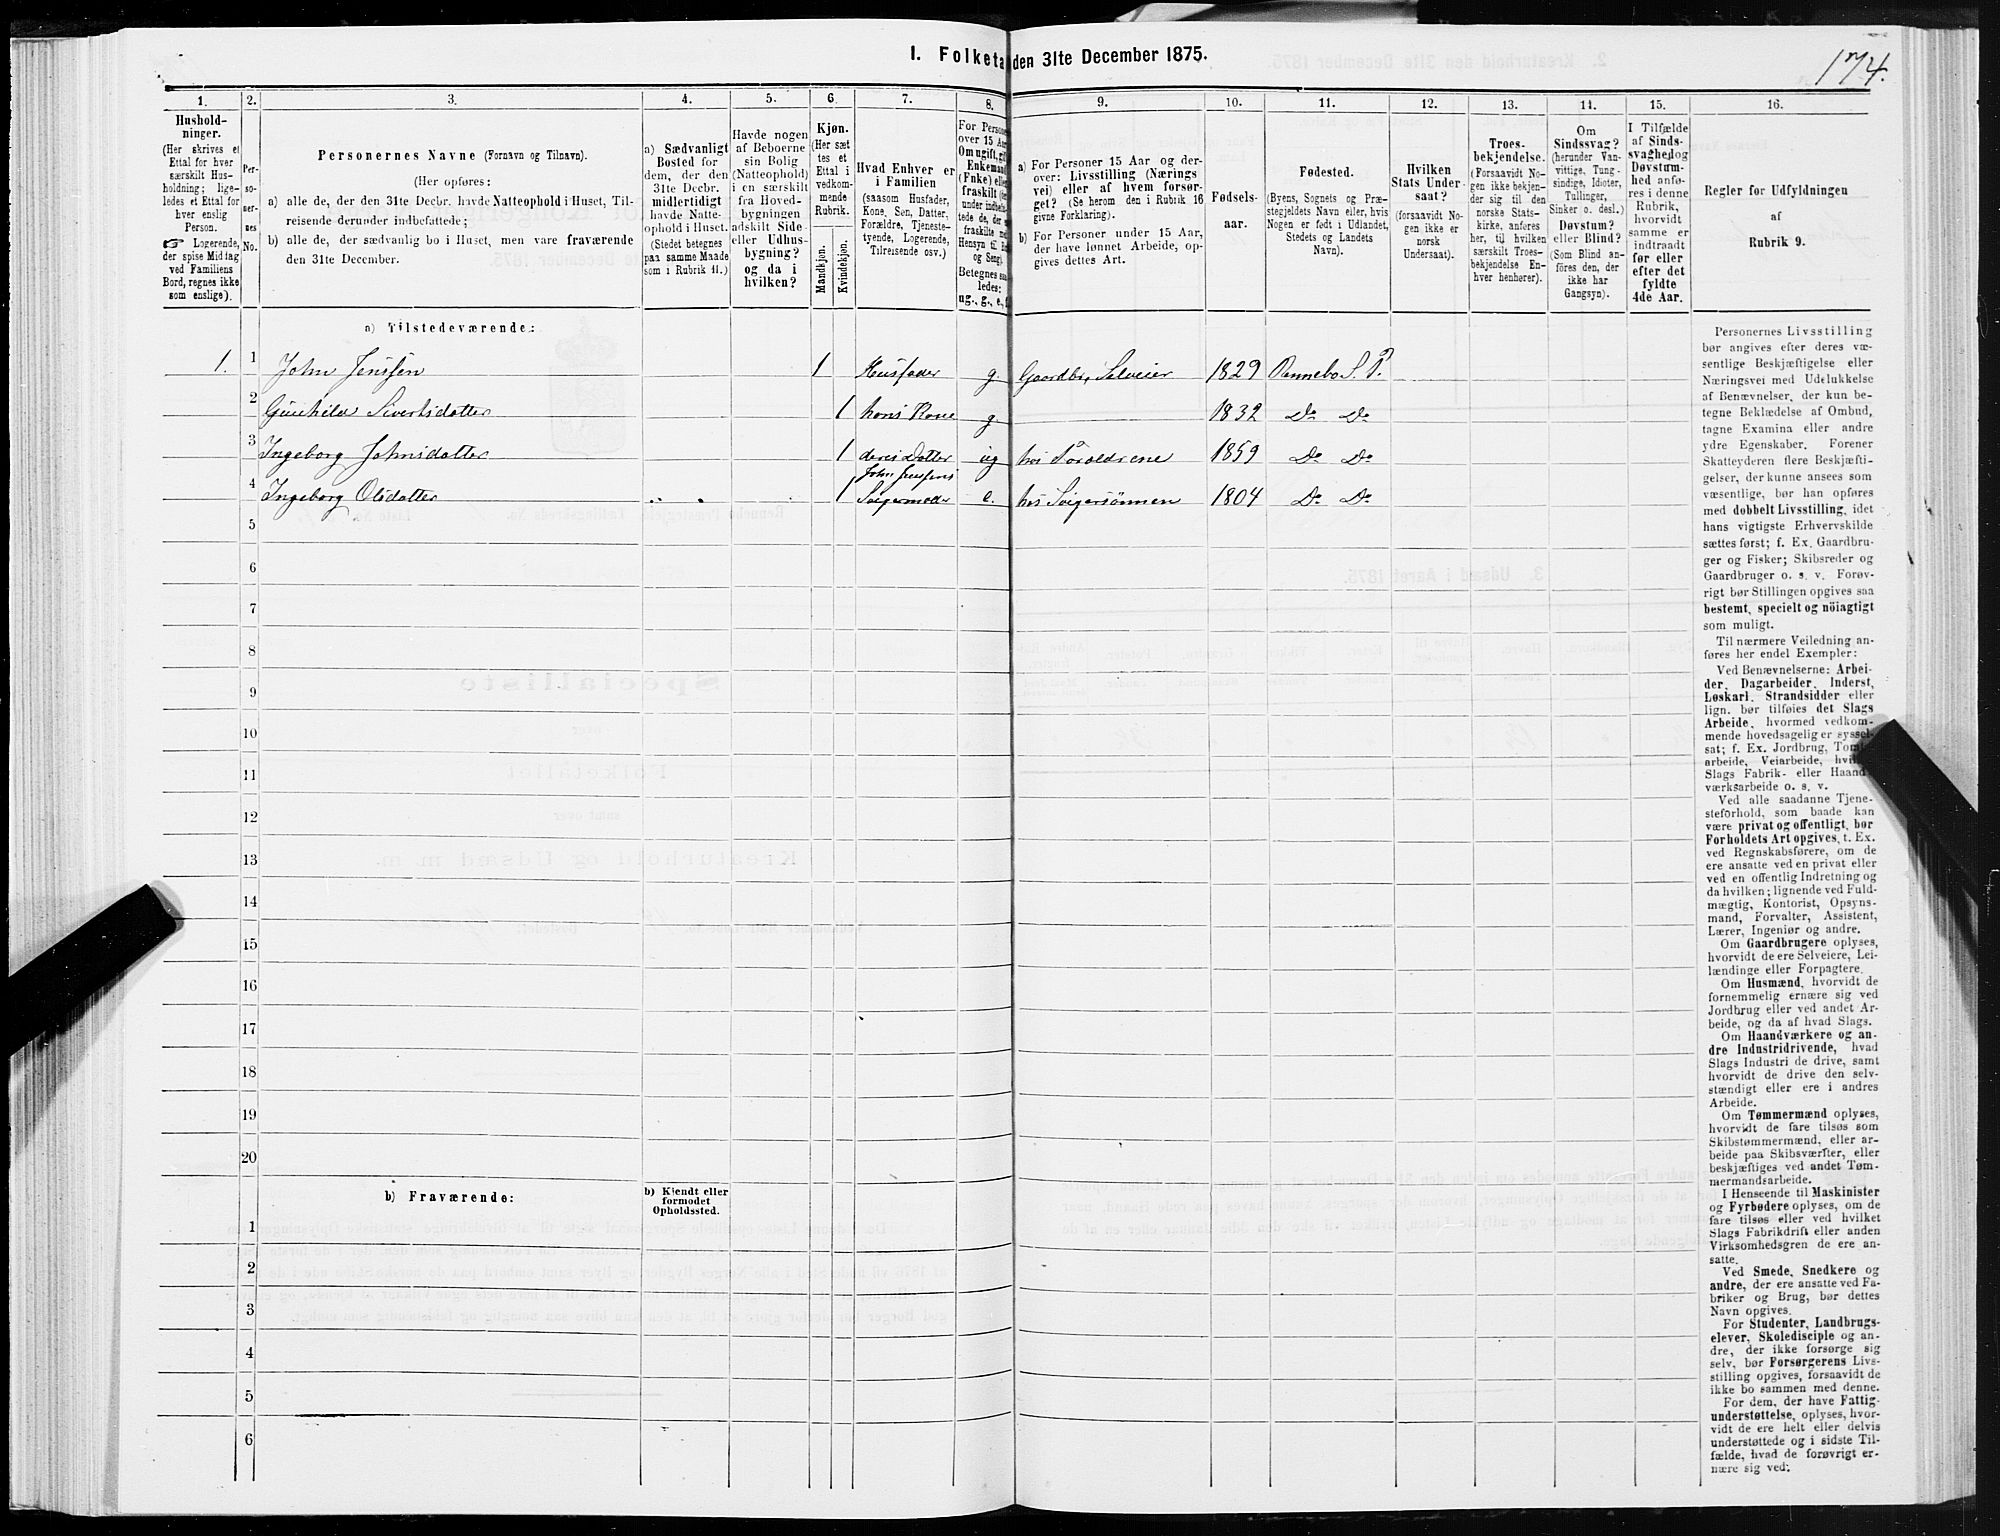 I. Folketa den 31te December 1875.
174.
1. 2. 3. 4. 5. 6. 7. 8. 9. 10. 11. 12. 13. 14. 15. 16.
Hushold-
ninger.
(Her skrives et
Ettal for hver
særskilt Hus-
holdning; lige-
ledes et Ettal for
hver enslig
Person.
☞ Logerende,
der spise Middag
ved Familiens
Bord, regnes ikke
som enslige).
Per-
so-
ner-
nes
No.
Personernes Navne (Fornavn og Tilnavn).
(Her opføres:
a) alle de, der den 31te Decbr. havde Natteophold i Huset, Til-
reisende derunder indbefattede;
b) alle de, der sædvanlig bo i Huset, men vare fraværende
den 31te December.
a) Sædvanligt
Bosted for
dem, der den
31te Decbr.
midlertidigt
havde Natte-
ophold i Huset.
(Stedet betegnes
paa samme Maade
som i Rubrik 11.)
Havde nogen
af Beboerne
sin Bolig
(Natteophold)
i en særskilt
fra Hoved-
bygningen
adskilt Side-
eller Udhus-
bygning?
og da i
hvilken?
Kjøn.
(Her sæt
tes et
Ettal i
vedkom-
mende
Rubrik.
Mandkjøn.
Kvindekjøn.
Hvad Enhver er
i Familien
(saasom Husfader,
Kone, Søn, Datter,
Forældre, Tjeneste-
tyende, Logerende,
Tilreisende osv.)
For Person
over 15 Aar
Om ugift, gift
Enkemand
(Enke) eller
fraskilt
og Seng).
Betegnes saa
ledes:
ug., g., e.,
a) For Personer 15 Aar og der-
over: Livsstilling (Nærings
vei) eller af hvem forsør-
get? (Se herom den i Rubrik 16
givne Forklaring).
b) For Personer under 15 Aar,
der have lønnet Arbeide, op-
gives dettes Art.
Fødsels-
aar.
Fødested.
(Byens, Sognets og Præ-
stegjeldets Navn eller, hvis
Nogen er født i Udlandet,
Stedets og Landets
Navn).
Hvilken
Stats Under-
saat?
(forsaavidt No-
gen ikke er
norsk
Undersaat).
Troes-
bekjendelse.
(Forsaavidt No-
gen ikke bekjen-
der sig til den
norske Stats-
kirke, anføres
her, til hvilken
særskilt Troes-
bekjendelse En-
hver henhører).
Om
Sindssvag?
(herunder Van-
vittige, Tung-
sindige, Idioter,
Tullinger,
Sinker o. desl.)
Døvstum?
eller Blind?
(Som Blind an-
føres den, der
ikke har
Gangsyn).
I Tilfælde
af Sinds-
svaghed og
Døvstum-
hed anfø-
res i denne
Rubrik,
hvorvidt
samme er
indtraadt
før eller
efter det
fyldte
4de Aar.
Regler for Udfyldningen
af
Rubrik 9.
a) Tilstedeværende:
1. 1 John Jenssen 1 Husfader g. Gaardbr, Selveier 1829 Rennebo S. P.
2 Gunhild Sivertsdatter 1 hans Kone g. 1832 Do Do
3 Ingeborg Johnsdatter 1 deres Datter ug hos Foræeldrene 1859 Do Do
4 Ingeborg Olsdatter 1 John Jenssens Svigermoder e. hos Svigersønnen 1804 Do Do
5
6
7
8
9
10
11
12
13
14
15
16
17
18
19
20
b) Fraværende:
b) Kjendt eller
formodet
Opholdssted.
1
2
3
4
5
6
Personernes Livsstilling
bør angives efter deres væ-
sentlige Beskjæftigelse eller
Næringsvei med Udelukkelse
af Benævnelser, der kun be-
tegne Beklædelse af Ombud,
tagne Examina eller andre
ydre Egenskaber. Forener
Skatteyderen flere Beskjæfti-
gelser, der kunne ansees som
væsentlige, bør han opføres
med dobbelt Livsstilling, idet
hans vigtigste Erhvervskilde
sættes først; f. Ex. Gaardbru-
ger og Fisker; Skibsreder og
Gaardbruger o. s. v. Forøv-
rigt bør Stillingen opgives saa
bestemt, specielt og nøiagtigt
som muligt.
Til nærmere Veiledning an-
føres her endel Exempler:
Ved Benævnelserne: Arbei-
der, Dagarbeider, Inderst,
Løskarl, Strandsidder eller
lign. bør tilføies det Slags
Arbeide, hvormed vedkom-
mende hovedsagelig er syssel-
sat; f. Ex. Jordbrug, Tomt-
arbeide, Veiarbeide, hvilket
Slags Fabrik- eller Haand-
værksarbeide o. s. v.
Ved alle saadanne Tjene-
steforhold, som baade kan
være privat og offentligt, bør
Forholdets Art opgives, t. Ex.
ved Regnskabsførere, om de
ere ansatte ved en privat eller
ved en offentlig Indretning og
da hvilken; lignende ved Fuld-
mægtig, Kontorist, Opsyns-
mand, Forvalter, Assistent,
Lærer, Ingeniør og andre.
Om Gaardbrugere oplyses,
hvorvidt de ere Selveiere, Lei-
lændinge eller Forpagtere.
Om Husmænd, hvorvidt de
fornemmelig ernære sig ved
Jordbrug eller ved andet Ar-
beide, og da af hvad Slags.
Om Haandværkere og an-
dre Industridrivende, hvad
Slags Industri de drive, samt
hvorvidt de drive den selv-
stændigt eller ere i andres
Arbeide.
Om Tømmermænd oplyses,
hvorvidt de fare tilsøs som
Skibstømmermænd, eller ar-
beide paa Skibsværfter, eller
beskjæftiges ved andet Tøm-
mermandsarbeide.
I Henseende til Maskinister
og Fyrbødere oplyses, om de
fare tilsøs eller ved hvilket
Slags Fabrikdrift eller anden
Virksomhedsgren de ere an-
satte.
Ved Smede, Snedkere og
andre, der ere ansatte ved Fa-
briker og Brug, bør dettes
Navn opgives.
For Studenter, Landbrugs-
elever, Skoledisciple og an-
dre, der ikke forsørge sig
selv, bør Forsørgerens Livs-
stilling opgives, forsaavidt de
ikke bo sammen med denne.
For dem, der have Fattig-
understøttelse, oplyses, hvor-
vidt de ere helt eller delvis
understøttede og i sidste Til-
fælde, hvad de forøvrigt er-
nære sig ved.